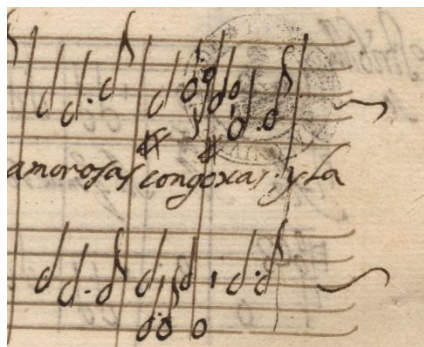 amorosas congoxas. y la